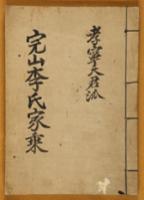 孝寧大君派
完山李氏家乘